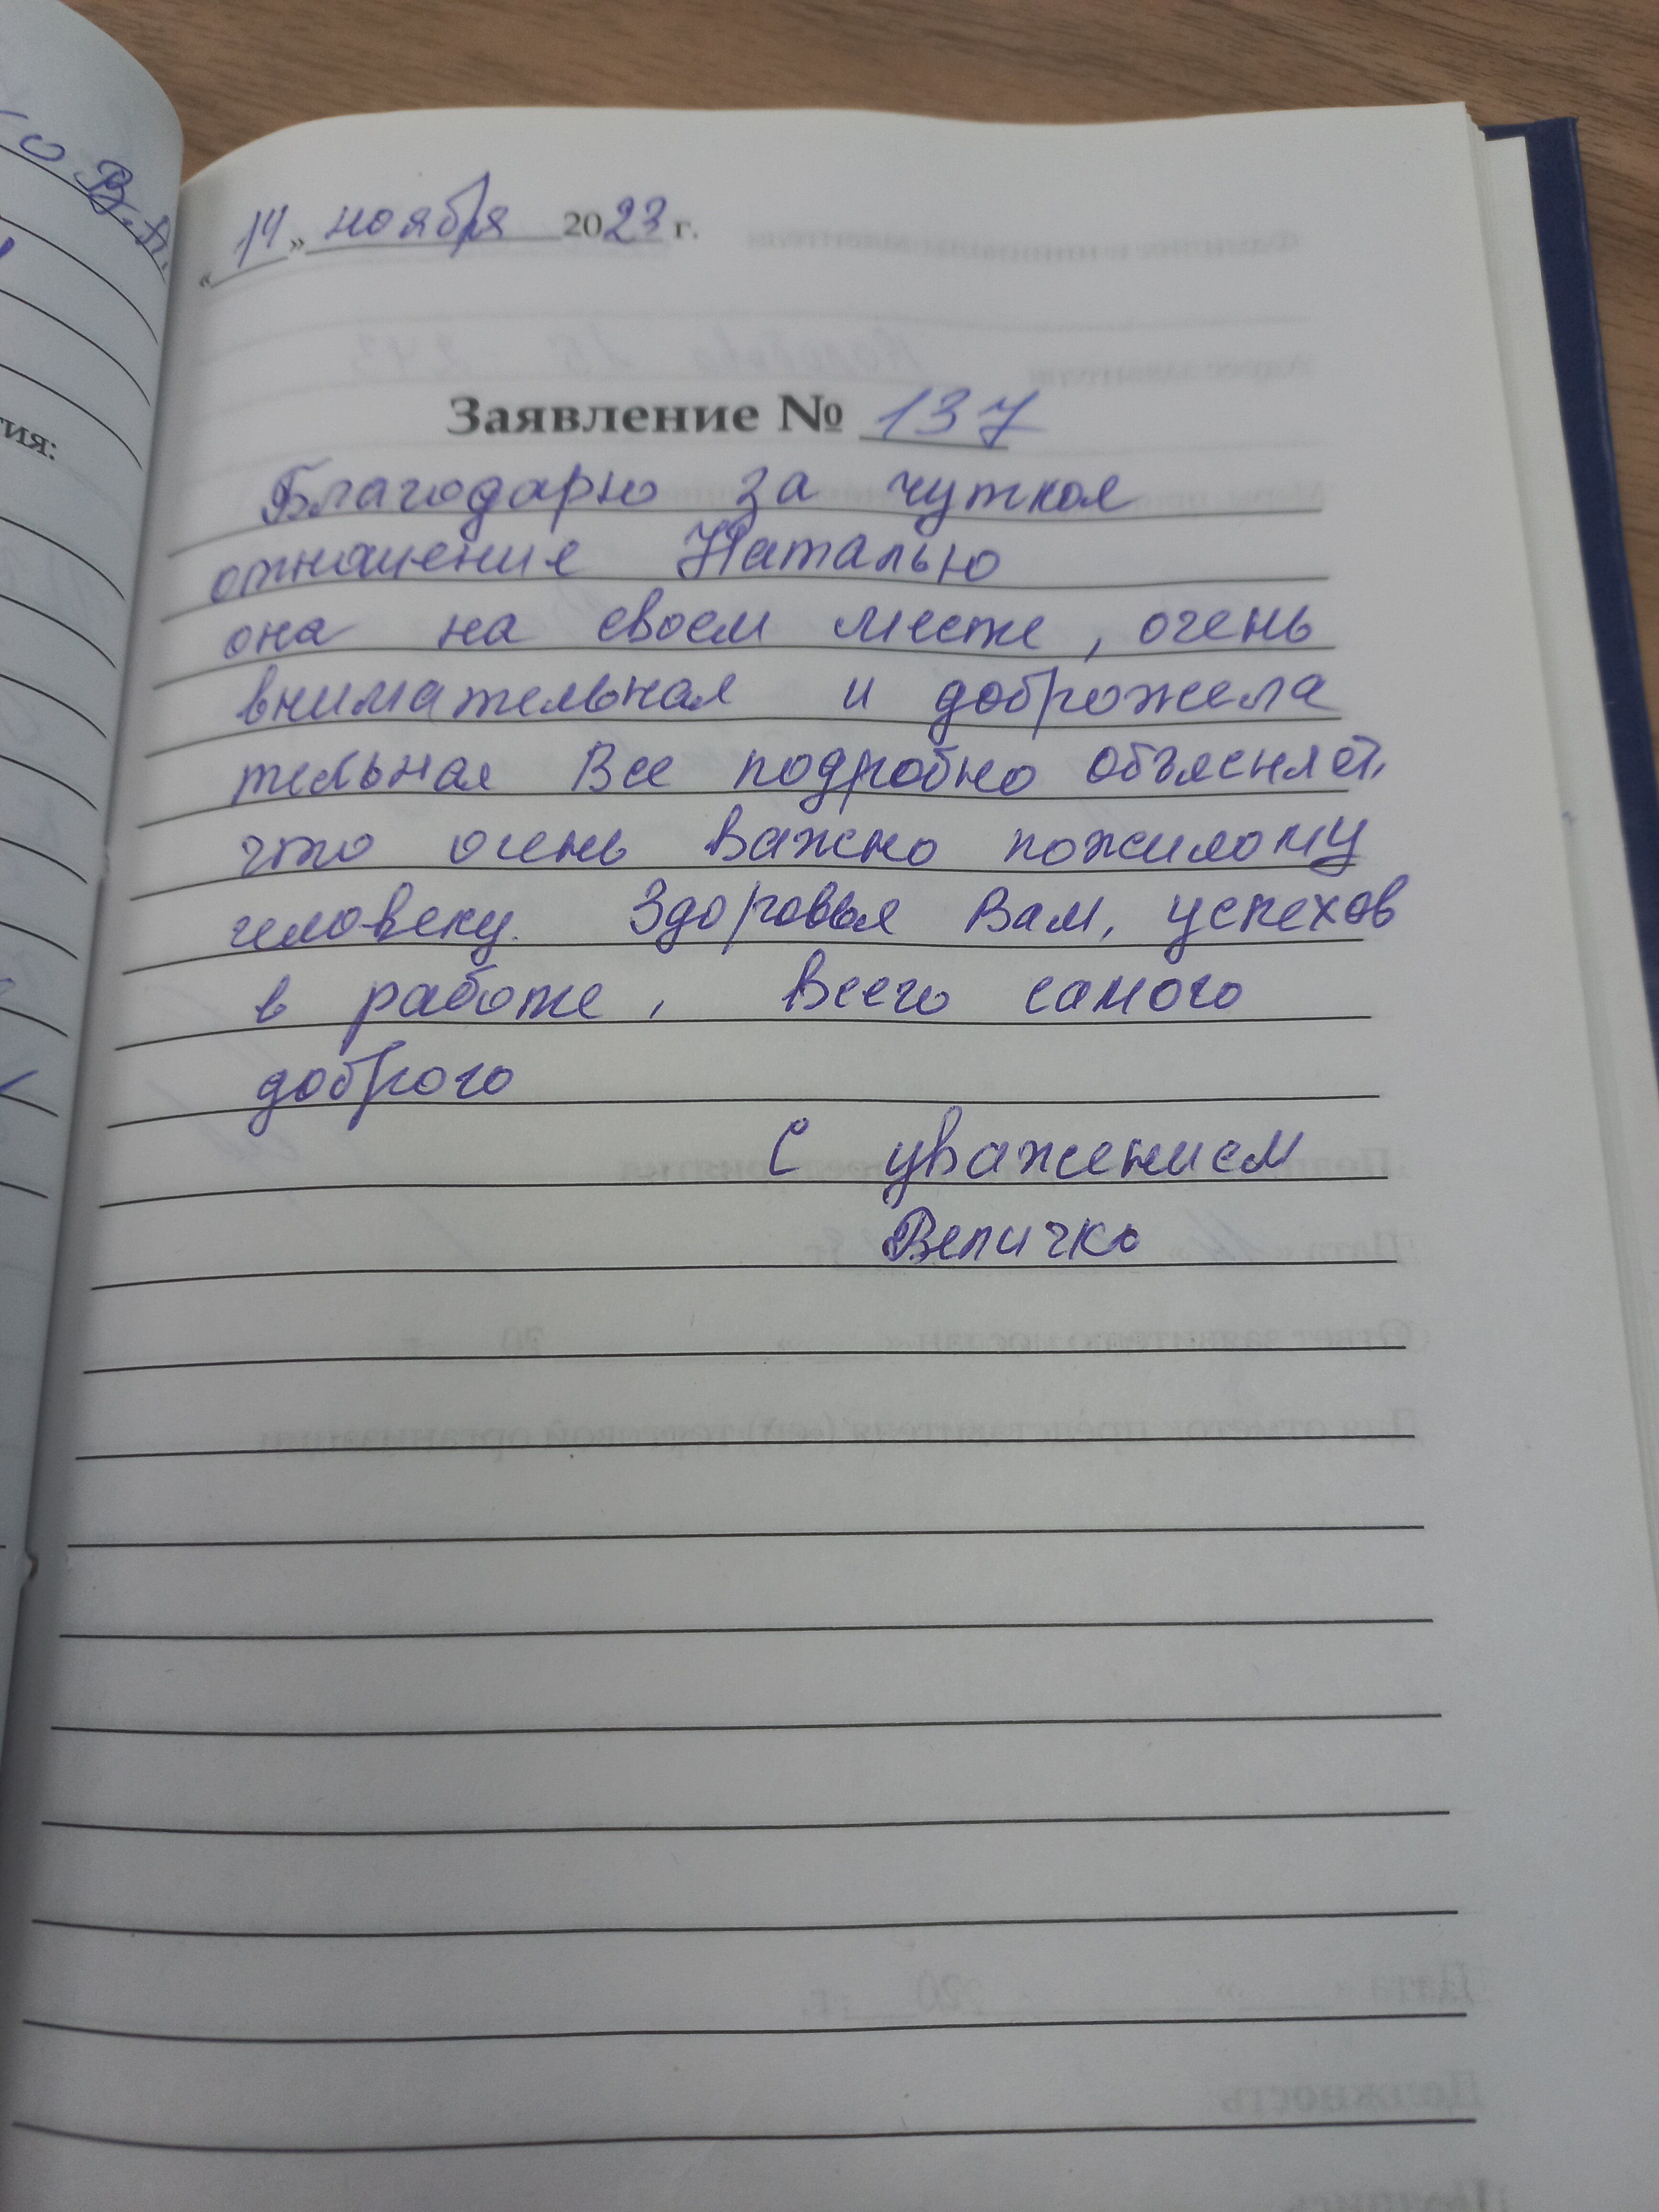 «14» ноября 2023 г.
Заявление № 137
Благодарю за чуткое
отношение Наталью
она на своем месте, очень
внимательная и доброжела
тельная Все подробно объясняет,
что очень важно пожилому
человеку. Здоровья Вам, успехов
в работе, Всего самого
доброго
С уважением
Величко